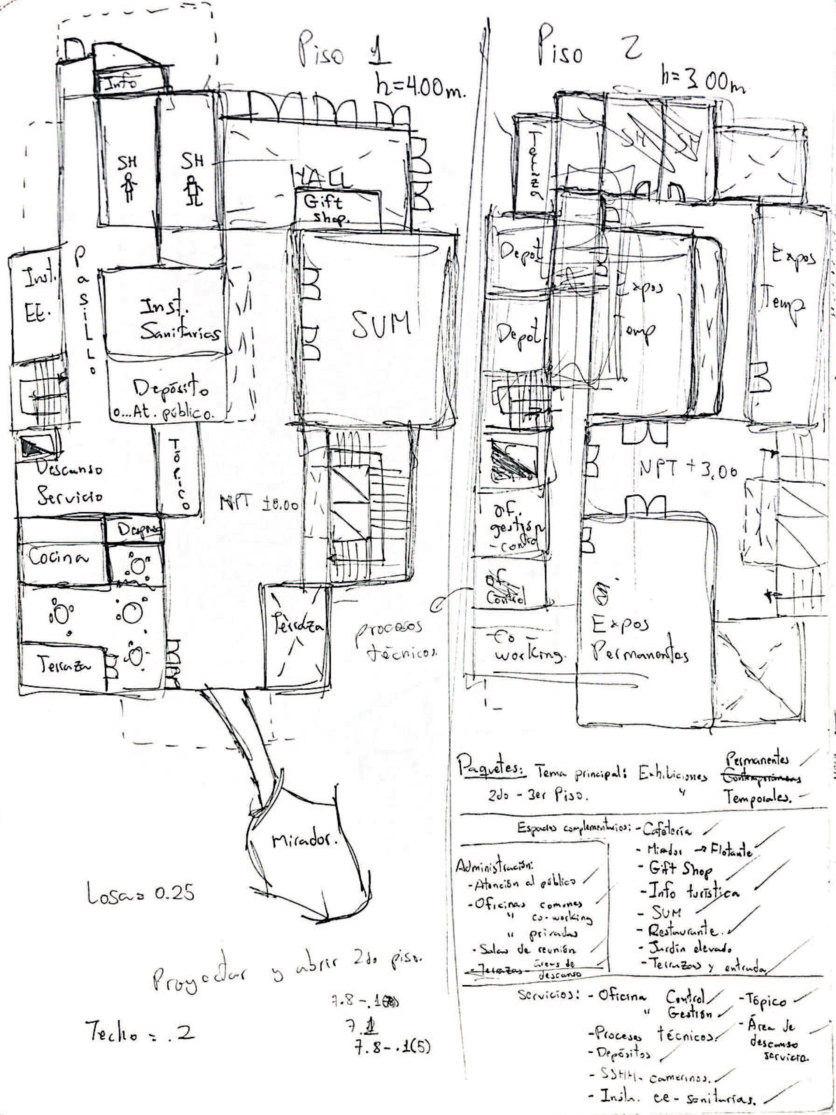 Piso 1
h=4.00m.
Info
SH
SH
HALL
Gift
shop.
Pasillo
Inst.
EE.
Inst.
Sanitarias
SUM
Depósito
o...At. público.
Tópico
Descanso
Servicio
NPT ±0.00
Despensa
Cocina
Terraza
Terraza
Mirador.
Losa= 0.25
Proyectar y abrir 2do piso.
Techo = .2
7.8-.1
7.1
7.8-.1(5)
Piso 2
h=3.00m
Terraza
SH
SH
Depot
Expos
Temp
Expos
Temp
Depot
NPT +3.00
Of.
gestión
-control
Of.
Control
procesos
técnicos.
Co-
working.
Expos
Permanentes
Paquetes: Tema principal: Exhibiciones Permanentes
2do - 3er Piso. " Temporales.
Espacios complementarios: - Cafetería
- Mirador → Flotante
- Gift Shop
- Info turística
- SUM
- Restaurante.
- Jardín elevado
- Terrazas y entrada
Administración:
- Atención al público
- Oficinas comunes
" co-working
" privadas
- Salas de reunión
- Terrazas áreas de
descanso
Servicios: - Oficina Control
" Gestión
- Procesos técnicos.
- Depósitos
- SSHH- camerinos.
- Insta. ee - sanitarias.
- Tópico
- Área de
descanso
servicio.